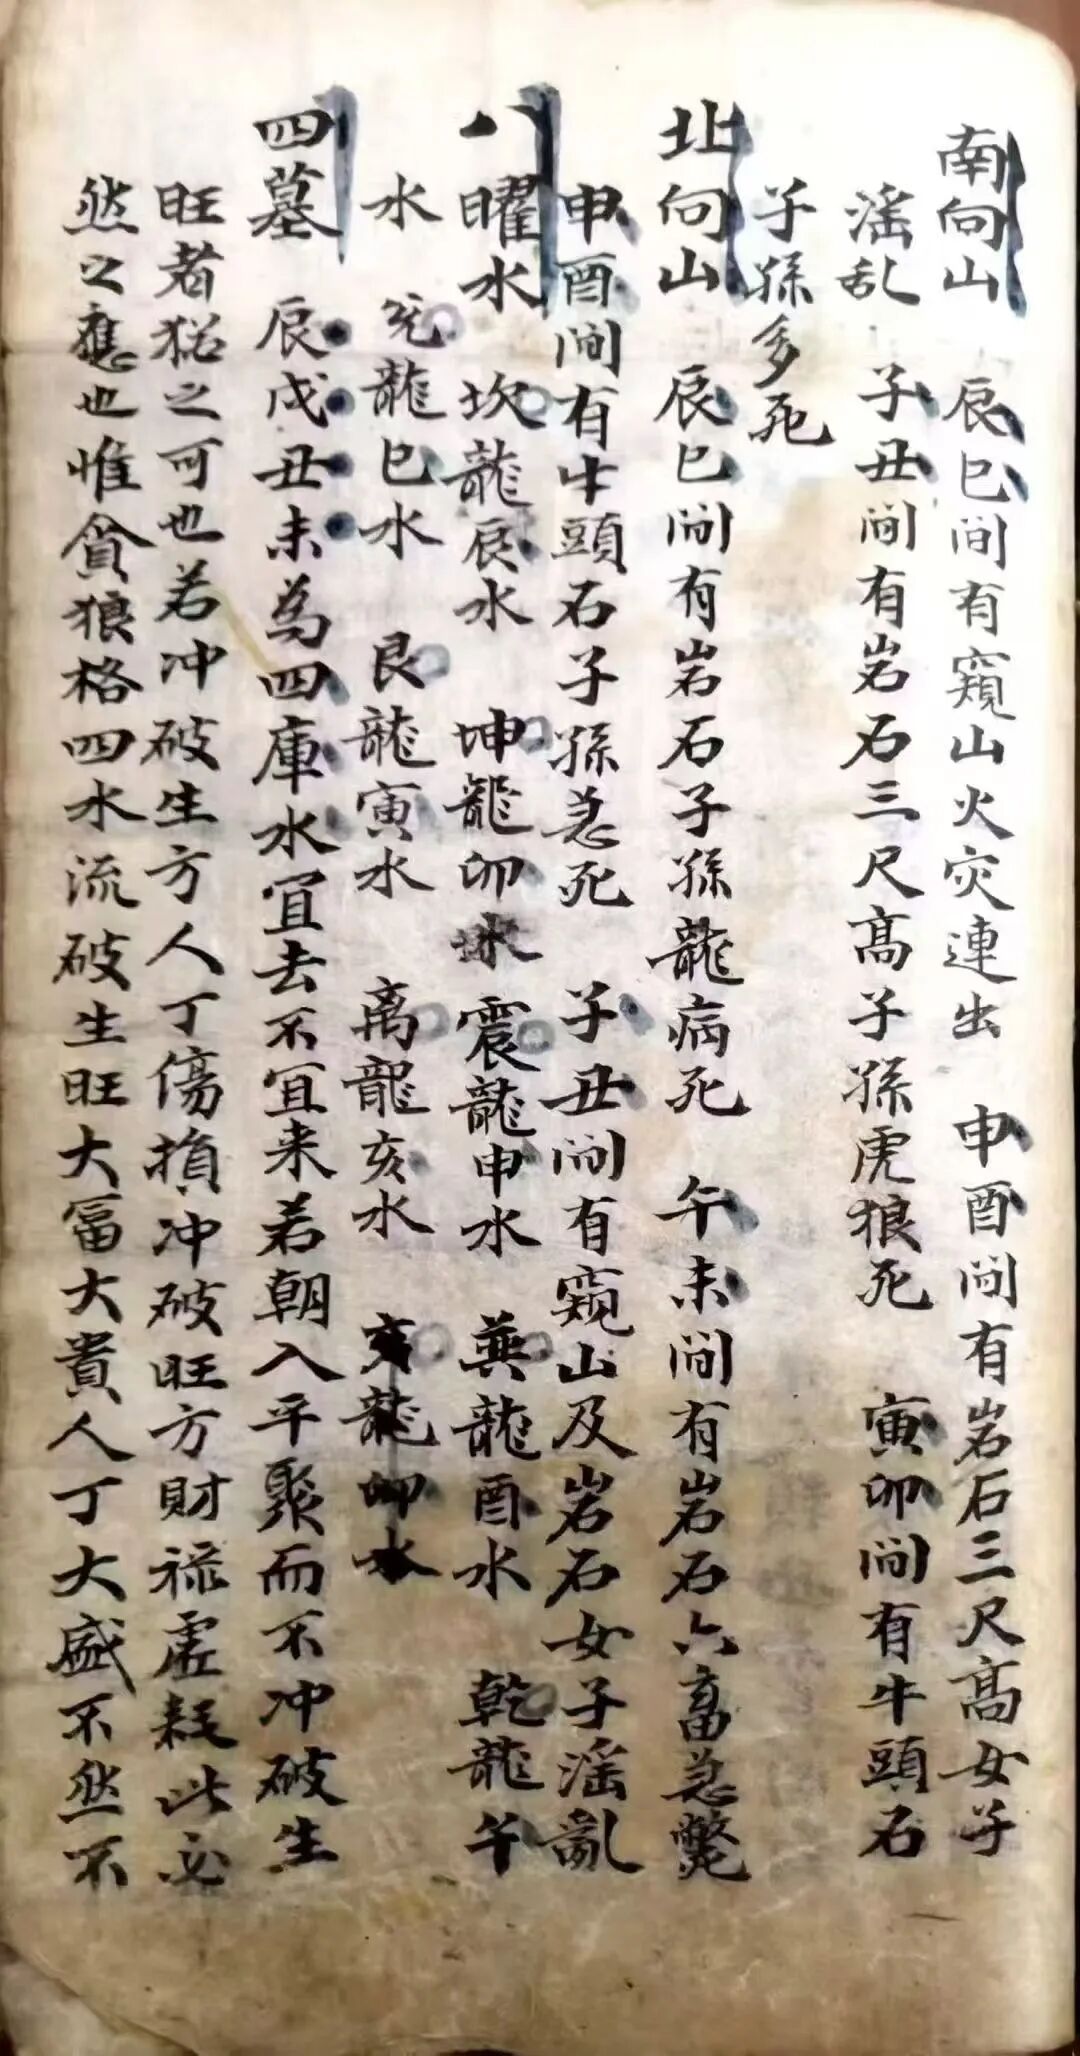 南向山 辰巳间有窺山火灾連出 申酉间有岩石三尺髙女子
滛乱 子丑间有岩石三尺髙子孫虎狼死 寅卯间有牛頭石
子孫多死
北向山 辰巳间有岩石子孫龍病死 午未间有岩石六畜急斃
申酉间有牛頭石子孫急死 子丑间有窺山及岩石女子滛亂
八曜水 坎龍辰水 坤龍卯水 震龍申水 巽龍酉水 乾龍午
水 兌龍巳水 艮龍寅水 离龍亥水 龍卯水
四墓 辰戌丑未為四庫水宜去不宜来若朝入平聚而不冲破生
旺者犹之可也若冲破生方人丁傷損冲破旺方財禄虚耗此必
然之應也惟貪狼格四水流破生旺大富大貴人丁大盛不然不